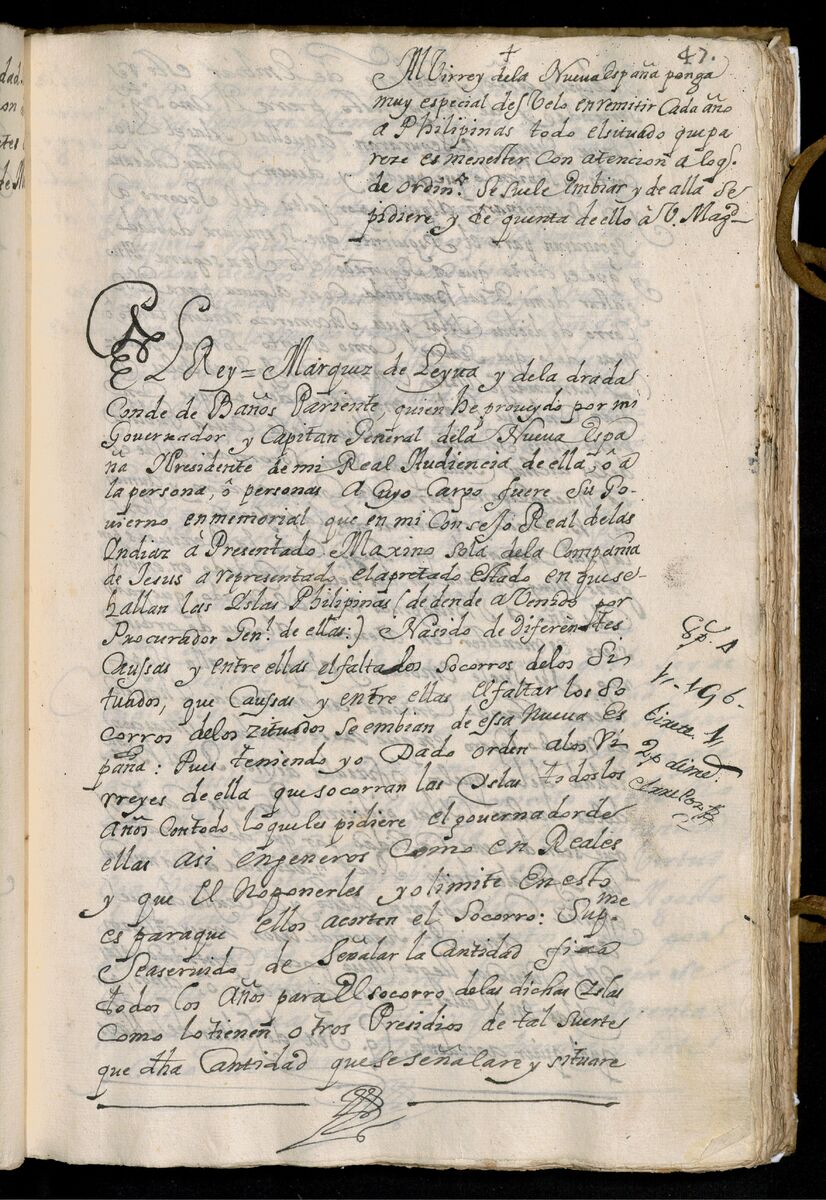 47.
Al Virrey dela Nueva España ponga
muy especial desvelo enremitir Cada año
a Philipinas todo elsituado quepa
reze es menester con atencion a loq.
de ordin.º se suele embiar y de alla se
pidiere y de quenta de ello à V. Mag.d
EL Rey = Marquez de Leyua y dela drada
Conde de Baños Pariente, quien he proveydo por mi
Governador y Capitan General dela Nueva Espa
ña Presidente de mi Real Audiencia de ella, ô â
la persona, ô personas a Cuyo Cargo fuere su Go-
vierno enmemorial que en mi Consejo Real delas
Yndiaz à Presentado Maxino Sola dela Compañia
de Jesus a representado elapretado Estado en quese
hallan las Yslas Philipinas (dedende a Venido por
Procurador Gen.l de ellas:) Nasido de Diferentes
Caussas y entre ellas elfalta los socorros delos Si
tuados, que Caussas y entre ellas elfaltar los so
corros delos zituados se embian de essa Nueva Es
paña: Pues teniendo yo Dado orden alos Vi
rreyes de ella que socorran las Yslas todos los
años contodo loqueles pidiere el governador de
ellas asi engeneros, como en Reales
y que El Noponerles yo limite En esto
es paraque ellos acorten el Socorro: Sup.me
Seaservido de Señalar la Cantidad fixa
todos los Años para El socorro delas dichas Yslas
Como lo tienen otros Presidios de tal suerte
que dha Cantidad que se señalare y situare